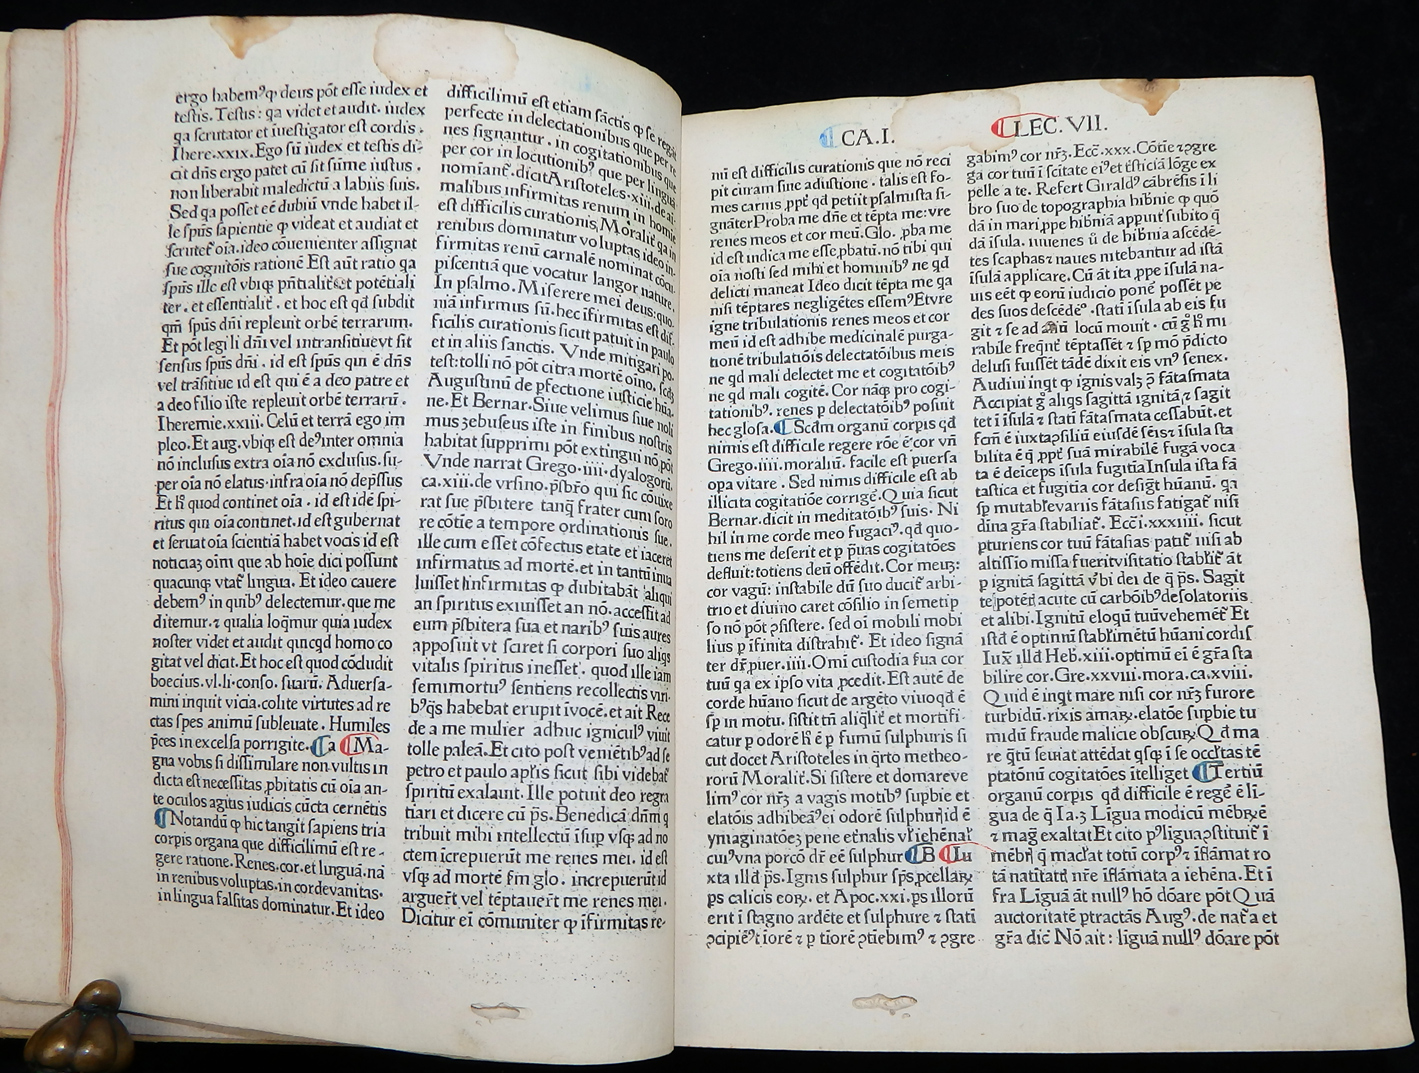 ergo habemꝰ ꝙ deus põt esse iudex et
testis. Testis: qa videt et audit. iudex
qa scrutator et iuestigator est cordis.
Ihere.xxix. Ego sũ iudex et testis di-
cit dñs ergo patet cũ sit sũme iustus.
non liberabit maledictũ a labiis suis.
Sed qa posset eẽ dubiũ vnde habet il-
le spũs sapientie ꝙ videat et audiat et
scrutet oĩa. ideo cõuenienter assignat
sue cognitõis rationẽ Est aũt ratio qa
spũs ille est vbiqꝫ pñtialit et potẽtiali
ter. et essentialit. et hoc est qd subdit
qm̃ spũs dñi repleuit orbẽ terrarum.
Et põt legi li dñi vel intransitiue vt sit
sensus spũs dñi. id est spũs qui ẽ dñs
vel trãsitiue id est qui ẽ a deo patre et
a deo filio iste repleuit orbẽ terrarũ.
Iheremie.xxiii. Celũ et terrã ego im
pleo. Et aug. vbiqꝫ est deꝰ inter omnia
nõ inclusus extra oĩa nõ exclusus. su-
per oĩa nõ elatus. infra oĩa nõ dep̃ssus
Et h̃ quod continet oĩa. id est idẽ spi-
ritus qui oĩa continet. id est gubernat
et seruat oĩa scientiã habet vocis id est
noticiaꝫ oĩm que ab hoĩe dici possunt
quacunqꝫ vtat lingua. Et ideo cauere
debemꝰ in quibꝰ delectemur. que me
ditemur. ⁊ qualia loq̃mur quia iudex
noster videt et audit quicqd homo co
gitat vel dicat. Et hoc est quod cõcludit
boecius. vl. li. conso. suarũ. Aduersa-
mini inquit vicia. colite virtutes ad re
ctas spes animũ subleuate. Humiles
p̃ces in excelsa porrigite. ¶a ¶Ma-
gna vobis si dissimilare non vultis in
dicta est necessitas ꝓbitatis cũ oĩa an-
te oculos agitis iudicis cũcta cernẽtis
¶Notandũ ꝙ hic tangit sapiens tria
corpis organa que difficilimũ est re-
gere ratione. Renes. cor. et linguã. nã
in renibus voluptas. in corde vanitas.
in lingua falsitas dominatur. Et ideo
difficilimũ est etiam sãctis ꝙ se regãt
perfecte in delectationibus que per re
nes signantur. in cogitationibus que
per cor in locutionibꝰ que per linguã
nomiant. dicit Aristoteles.xiii. de ai-
malibus infirmitas renum in homie
est difficilis curationis. Moralit qa in
renibus dominatur voluptas ideo in-
firmitas renũ carnalẽ nominat cõcu-
piscentiã que vocatur langor nature.
In psalmo. Miserere mei deus: quo-
niã infirmus sũ. hec ĩfirmitas est dif-
ficilis curationis sicut patuit in paulo
et in aliis sanctis. Vnde mitigari po-
test: tolli nõ põt citra mortẽ oĩno. scdꝫ
Augustinũ de ꝑfectione iusticie hũa-
ne. Et Bernar. Siue velimus siue noli
mus ꝫebuseus iste in finibus nostris
habitat supprimi põt extingui nõ põt
Vnde narrat Grego.iiii. dyalogorũ.
ca.xiii. de vrsino. p̃sbr̃o qui sic cõuixe
rat sue p̃sbitere tanqꝫ frater cum soro
re cõtie a tempore ordinationis sue.
ille cum esset cõfectus etate et iaceret
infirmatus ad mortẽ. et in tantũ inua
luisset infirmitas ꝙ dubitabãt aliqui
an spiritus exiuisset an nõ. accessit ad
eum p̃sbitera sua et naribꝰ suis aures
apposuit vt sciret si corpori suo aliqs
vitalis spiritus inesset. quod ille iam
semimortuꝰ sentiens recollectis viri-
bꝰ qs habebat erupit ĩ vocẽ. et ait Rece
de a me mulier adhuc igniculꝰ viuit
tolle paleã. Et cito post veniẽtibꝰ ad se
petro et paulo apl̃is sicut sibi videbat
spiritũ exalauit. Ille potuit deo regra
tiari et dicere cũ p̃s. Benedicã dñm q
tribuit mihi intellectũ ĩsup vsqꝫ ad no
ctem ĩcrepuerũt me renes mei. id est
vsqꝫ ad mortẽ fm glo. increpuerũt id
arguerũt vel tẽptauerũt me renes mei.
Dicitur eĩ cõmuniter ꝙ ĩfirmitas re-
¶CA.I. ¶LEC.VII.
nũ est difficilis curationis que nõ reci
pit curam sine adustione. talis est fo-
mes carnis ꝓpt qd petiit psalmista si-
gnãter Proba me dñe et tẽpta me: vre
renes meos et cor meũ. Glo. ꝓba me
id est indica me esse ꝓbatũ. nõ tibi qui
oĩa nosti sed mihi et hominibꝰ ne qd
delicti maneat Ideo dicit tẽpta me qa
nisi tẽptares negligẽtes essem? Et vre
igne tribulationis renes meos et cor
meũ id est adhibe medicinalẽ purga-
tionẽ tribulatiõis delectatõibus meis
ne qd mali delectet me et cogitatõibꝰ
ne qd mali cogitẽ. Cor nãqꝫ pro cogi-
tationibꝰ. renes p delectatõibꝰ posuit
hec glosa. ¶Scdm organũ corpis qd
nimis est difficile regere rõe ẽ cor vñ
Grego.iiii. moraliũ. facile est puersa
opa vitare. Sed nimis difficile est ab
illicita cogitatiõe corrigẽ. Quia sicut
Bernar. dicit in meditatõibꝰ suis. Ni
hil in me corde meo fugaciꝰ. qd quo-
tiens me deserit et p p̃uas cogitatões
defluit: totiens deũ offẽdit. Cor meuꝫ:
cor vagũ: instabile dũ suo ducit arbi-
trio et diuino caret cõsilio in semetip
so nõ põt ꝯsistere. sed oĩ mobili mobi
lius p ĩfinita distrahit. Et ideo signã
ter dr̃ puer.iiii. Omi custodia fua cor
tuũ qa ex ipso vita ꝓcedit. Est autẽ de
corde hũano sicut de argẽto viuo qd ẽ
sp̃ in motu. sistit tñ aliqlit et mortifi-
catur p odorẽ h̃ ẽ p fumũ sulphuris si
cut docet Aristoteles in q̃rto metheo-
rorũ Moralit. Si sistere et domare ve
limꝰ cor nr̃ꝫ a vagis motibꝰ supbie et
elatõis adhibeaꝰ ei odorẽ sulphuris id ẽ
ymaginatõeꝫ pene et̃nalis vl̃ iehẽnal̃
cuiꝰ vna porcõ dr̃ eẽ sulphur ¶B ¶Iu
xta illd p̃s. Ignis sulphur sp̃s ꝓcellaꝝ
ps calicis eoꝝ. et Apoc.xxi. ps illorũ
erit ĩ stagno ardẽte et sulphure ⁊ stati
gabimꝰ cor nr̃ꝫ. Ecc.xxx. Cõtie ⁊ ꝯgre
ga cor tuũ ĩ scitate ei
pelle a te. Refert Giraldꝰ cãbrẽsis ĩ li
bro suo de topographia hibñie ꝙ quo
dã in mari ꝓpe hibñiã apput subito q̃
dã ĩsula. iuuenes ũ de hibñia ascẽdẽ-
tes scaphas ⁊ naues nitebantur ad istã
ĩsulã applicare. Cũ ãt ita ꝓpe ĩsulã na-
uis eẽt ꝙ eorũ iudicio ponẽ possẽt pe
des suos descẽdẽ. stati ĩsula ab eis fu
git ⁊ se ad aliũ locũ mouit. cũ g̃ h̃ mi
rabile freqñt tẽptassẽt ⁊ sp̃ mõ p̃dicto
delusi fuissẽt tãdẽ dixit eis vnꝰ senex.
Audiui inqt ꝙ ignis valꝫ ꝯ̃ fãtasmata
Accipiat g̃ aliqs sagittã ignitã ⁊ sagit
tet ĩ ĩsulã ⁊ stati fãtasmata cessabũt. et
fcm̃ ẽ iuxta ꝯsiliũ eiusdẽ sẽis ⁊ ĩsula sta
bilita ẽ q̃ ꝓpt suã mirabilẽ fugã voca
ta ẽ deiceps ĩsula fugitĩa Insula ista fã
tastica et fugitia cor desigt hũanũ. qa
sp̃ mutabr̃ euariis fãtasiis fatigat nisi
diĩna gr̃a stabiliat. Ecci.xxxiiii. sicut
pturiens cor tuũ fãtasias patit nisi ab
altissĩo missa fuerit visitatio stabr̃it ãt
p ignitã sagittã v̾bi dei de q̃ p̃s. Sagit
te potẽt acute cũ carbõibꝰ desolatoriis
et alibi. Ignitũ eloqũ tuũ vehemẽt Et
istd ẽ optimũ stabr̃imẽtũ hũani cordis
Iux̃ illd Heb.xiii. optimũ ei ẽ gr̃a sta
bilire cor. Gre.xxviii. mora. ca.xviii.
Quid ẽ inqt mare nisi cor nr̃ꝫ furore
turbidũ. rixis amaꝝ. elatõe supbie tu
midũ fraude malicie obscuꝝ Qd ma
re q̃tũ seuiat attẽdat qsqꝫ ĩ se occl̃tas tẽ
ptatõnũ cogitatões ĩtelliget ¶Tertiũ
organũ corpis qd difficile ẽ regẽ ẽ li-
gua de q̃ Ia.3 Ligua modicũ mẽbꝝ ẽ
⁊ mag̃ exaltat Et cito pꝰ ligua ꝯstituit ĩ
mẽbr̃ q̃ macl̃at totũ corpꝰ ⁊ ĩflãmat ro
tã natitatĩ nr̃e ĩflãmata a iehẽna. Et ĩ
fra Liguã ãt nullꝰ hõ dõare põt Quã
auctoritatẽ ptractãs Augꝰ. de nat̃a et
gr̃a dic̃ Nõ ait: liguã nullꝰ dõare põt